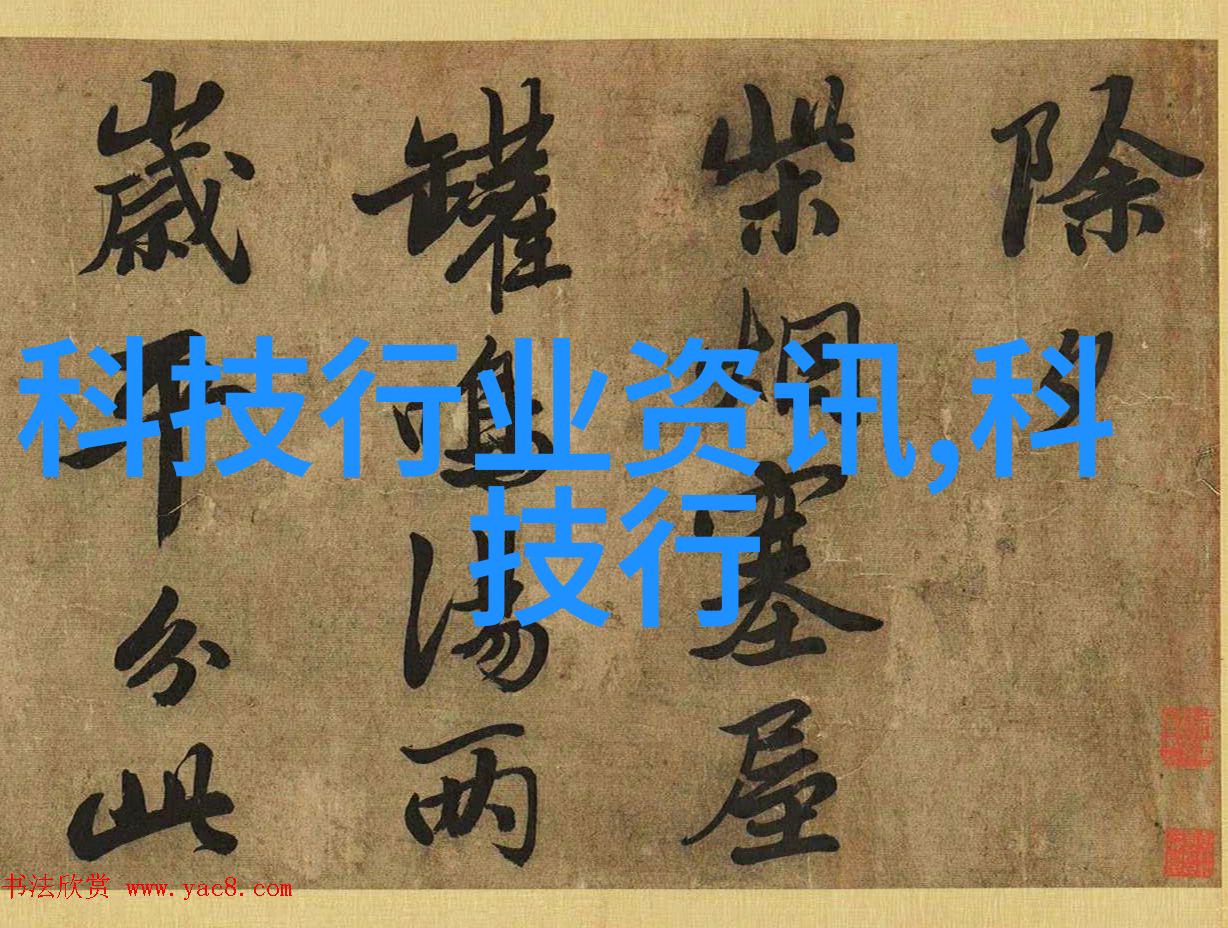 除夕
柴烟塞屋
罐鳴湯两
歲平分此
科技行业资讯,科
技行
书法欣赏 www.yac8.com